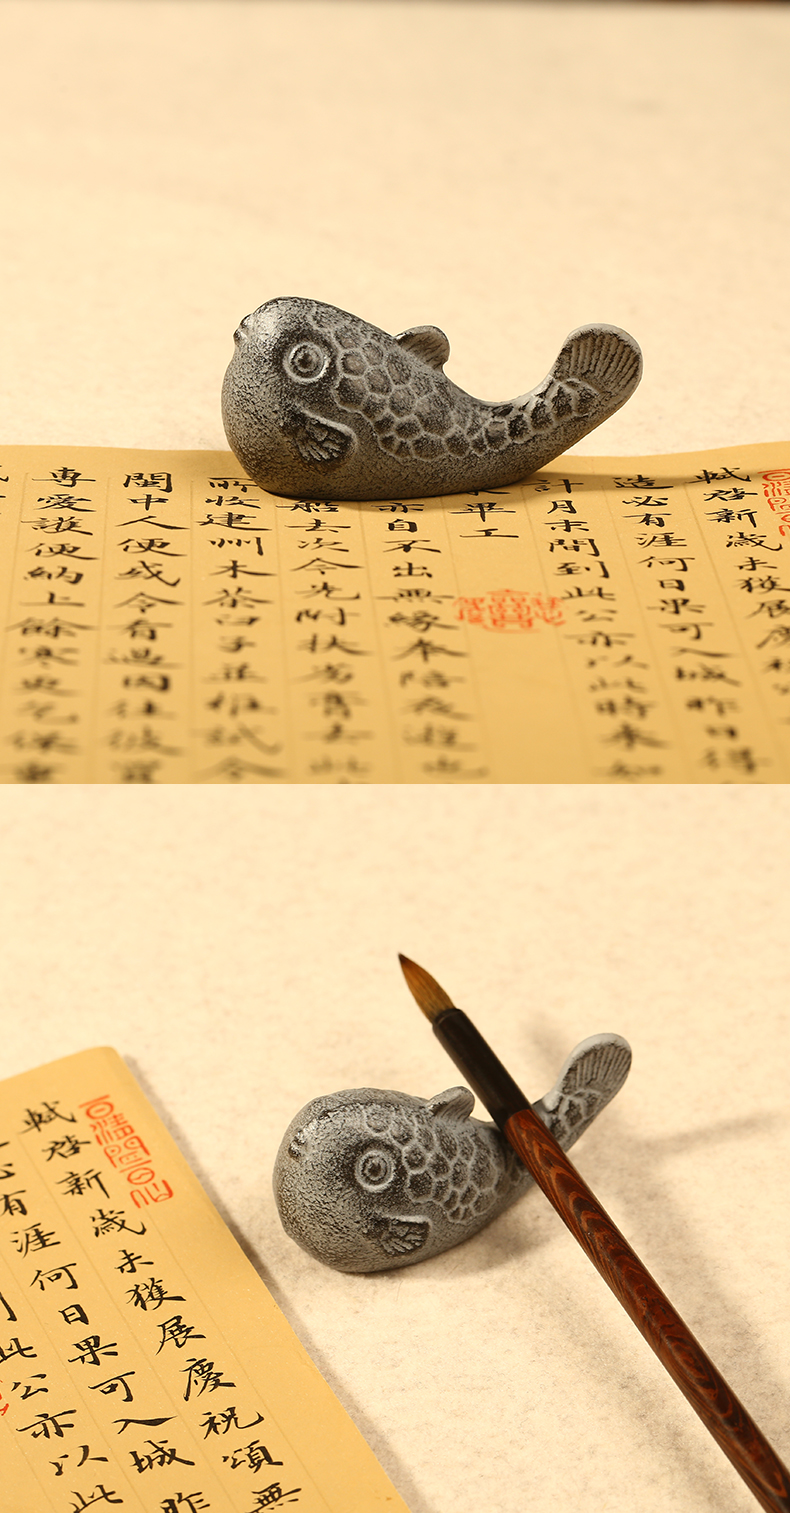 軾啓新歲未獲展慶
造必有涯何日果可入城昨日得
計月末間到此公亦以此時來如
畢工
亦自不出無緣奉陪夜遊也
去次今先附扶劣膏去此
所收建州木茶臼子並椎試令
閩中人便或令看過因往彼買
專愛護便納上餘寒更乞保重
軾啓新歲未獲展慶祝頌無
必有涯何日果可入城昨
此公亦以此